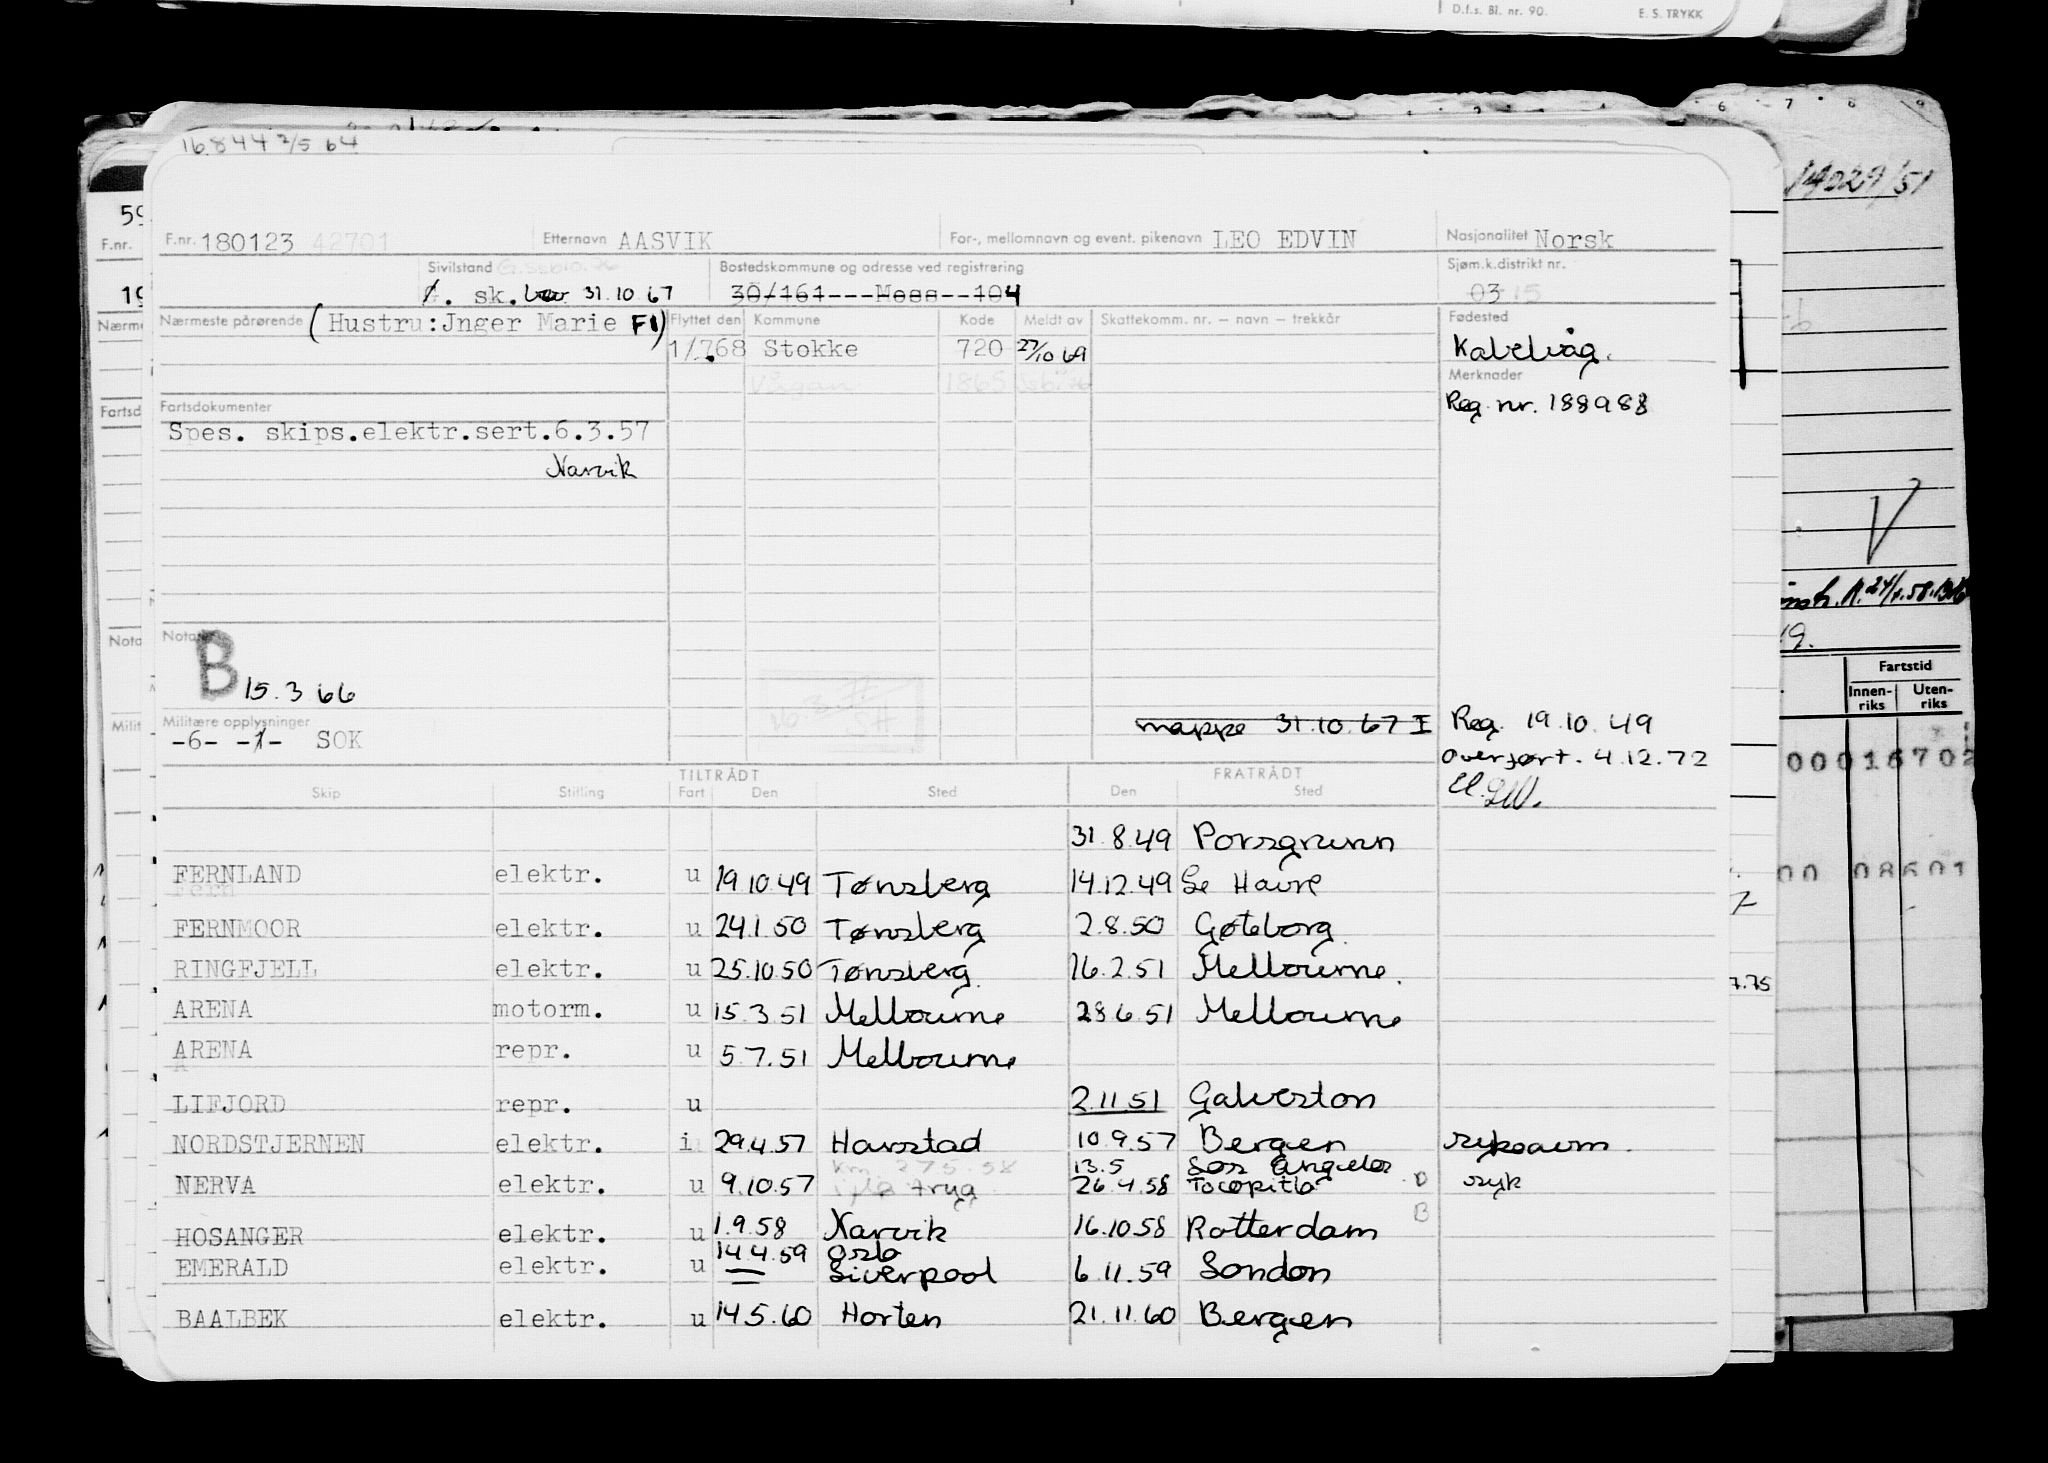 D.f.s. Bl. nr. 90. E. S. TRYKK
16844 2/5 64
14029/51
F.nr. 180123 42701 Etternavn AASVIK For-, mellomnavn og event. pikenavn LEO EDVIN Nasjonalitet Norsk
Sivilstand Bostedskommune og adresse ved registrering Sjøm.k.distrikt nr.
sk. 31.10.67 30/161---Moss--104 03 15
Nærmeste pårørende (Hustru:Jnger Marie F1) Flyttet den Kommune Kode Meldt av Skattekomm. nr. – navn – trekkår Fødested
1/7.68 Stokke 720 27/10 69 Kabelvåg.
Vågan 1865 Merknader
Fartsdokumenter Reg. nr. 188988
Spes. skips.elektr.sert.6.3.57
Narvik
Notater
B 15.3 66
Militære opplysninger mappe 31.10.67 I Reg. 19.10.49
-6- -1- SOK Overført. 4.12.72
TILTRÅDT FRATRÅDT
Skip Stilling Fart Den Sted Den Sted
31.8.49 Porsgrunn
FERNLAND elektr. u 19.10.49 Tønsberg 14.12.49 Le Havre
FERNMOOR elektr. u 24.1.50 Tønsberg 2.8.50 Gøteborg.
RINGFJELL elektr. u 25.10.50 Tønsberg. 16.2.51 Melbourne.
ARENA motorm. u 15.3.51 Melbourne 28.6.51 Melbourne
ARENA repr. u 5.7.51 Melbourne
LIFJORD repr. u 2.11.51 Galveston
NORDSTJERNEN elektr. i 29.4.57 Harstad 10.9.57 Bergen
13.5 Los Angeles
NERVA elektr. u 9.10.57 26.4.58 Tocopilla syk
HOSANGER elektr. u 1.9.58 Narvik 16.10.58 Rotterdam
14.4.59 Oslo
EMERALD elektr. u Liverpool 6.11.59 London
BAALBEK elektr. u 14.5.60 Horten 21.11.60 Bergen
Fartstid
Innenriks Utenriks
7.75